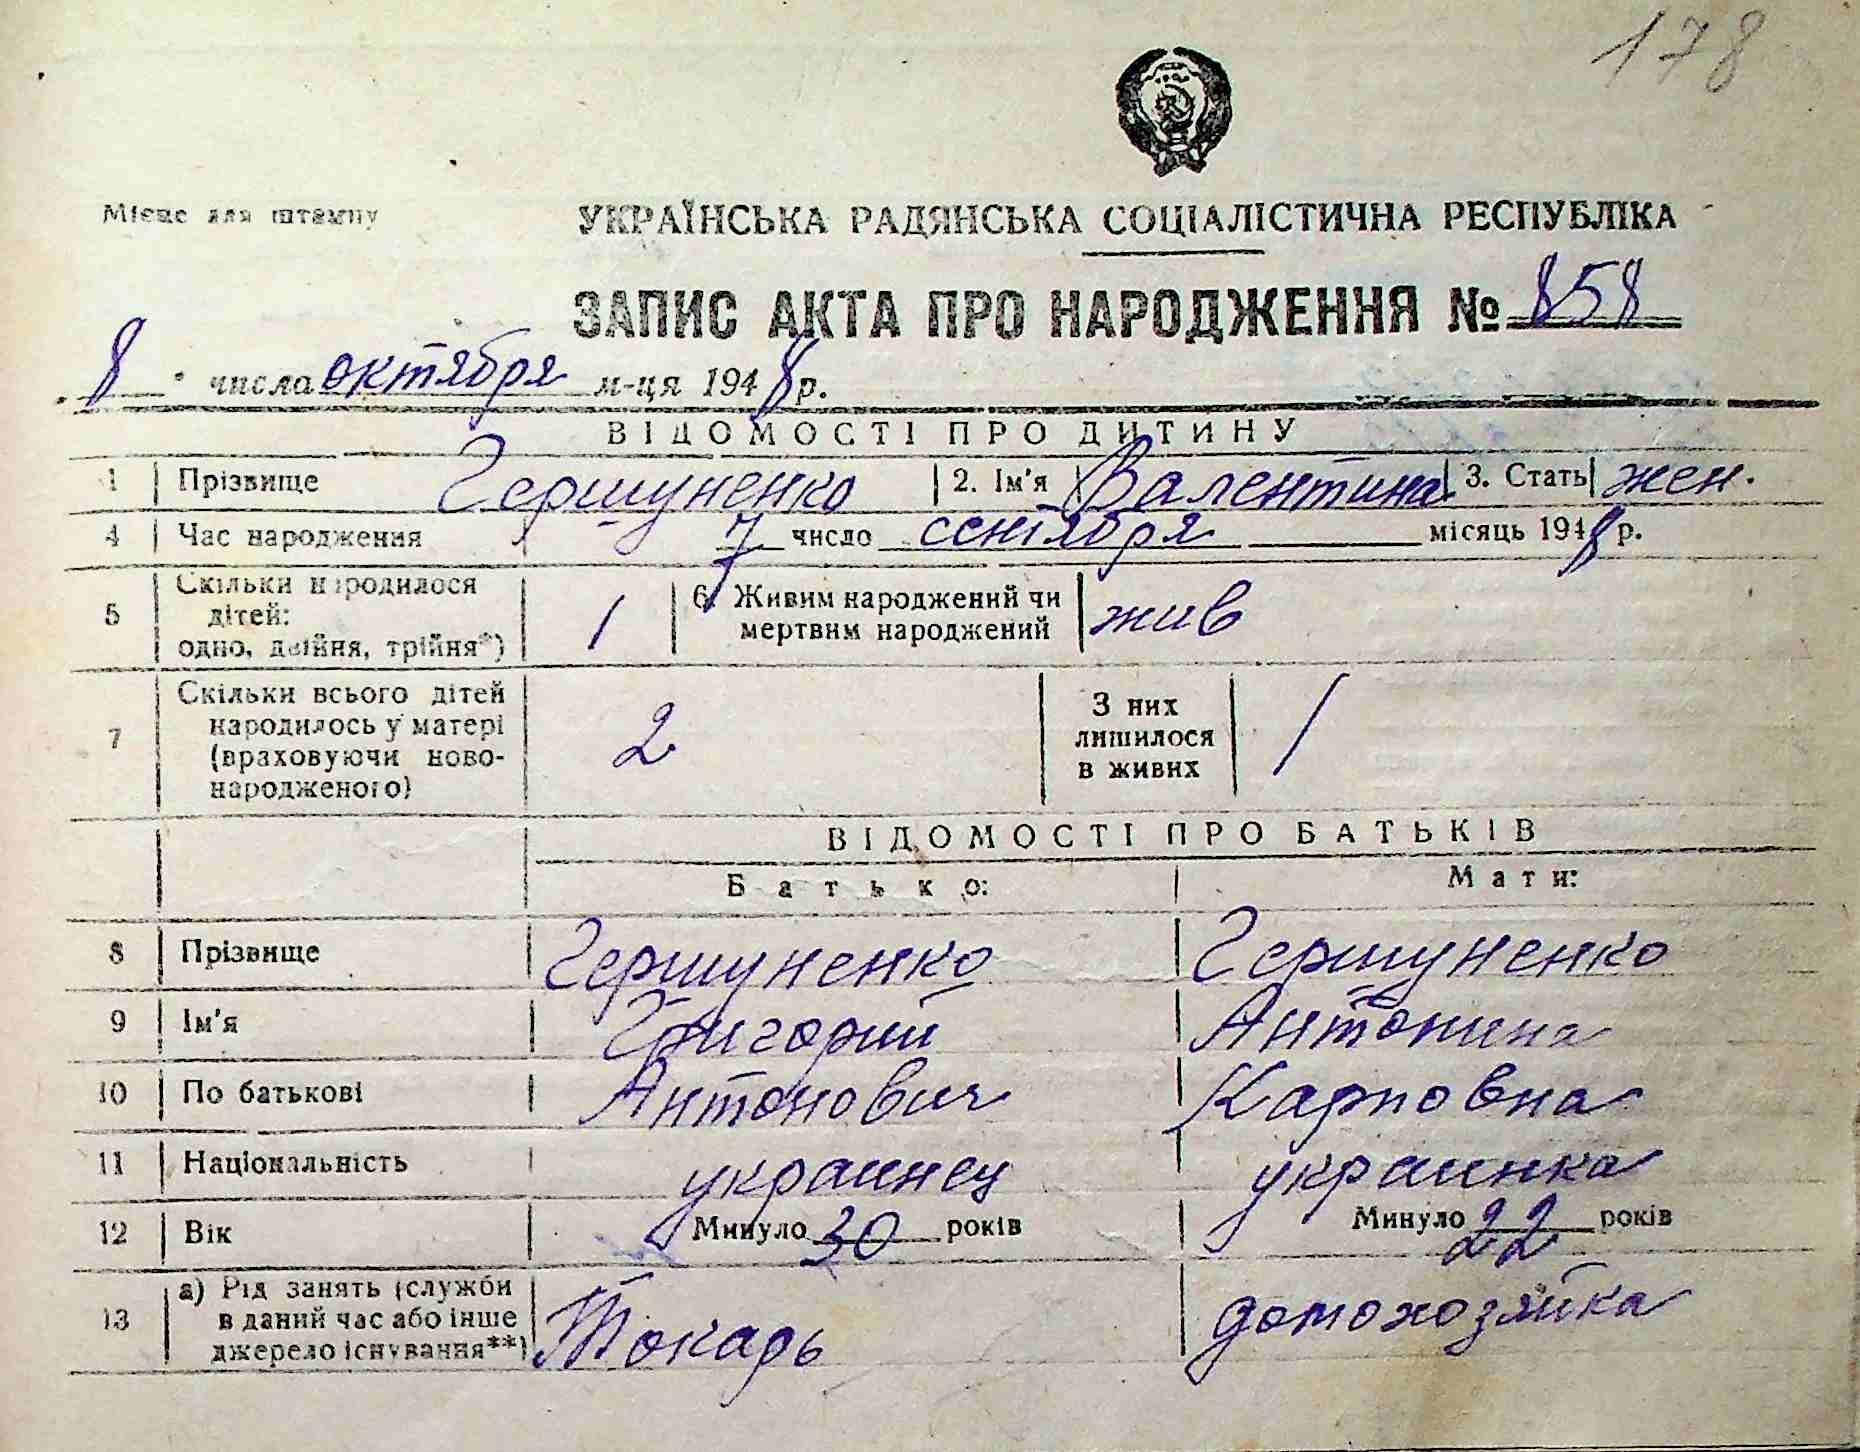 178
Місце для штампу
УКРАЇНСЬКА РАДЯНСЬКА СОЦІАЛІСТИЧНА РЕСПУБЛІКА
ЗАПИС АКТА ПРО НАРОДЖЕННЯ № 858
8 числа октября м-ця 1948 р.
ВІДОМОСТІ ПРО ДИТИНУ
1 Прізвище Гершуненко 2. Ім'я Валентина 3. Стать жен.
4 Час народження 7 число сентября місяць 1948 р.
5 Скільки народилося дітей: одно, двійня, трійня*) 1 6. Живим народжений чи мертвим народжений жив
7 Скільки всього дітей народилось у матері (враховуючи ново-народженого) 2 З них лишилося в живих 1
ВІДОМОСТІ ПРО БАТЬКІВ
Батько: Мати:
8 Прізвище Гершуненко Гершуненко
9 Ім'я Григорий Антонина
10 По батькові Антонович Карповна
11 Національність украинец украинка
12 Вік Минуло 30 років Минуло 22 років
13 а) Рід занять (служби в даний час або інше джерело існування**) Токарь домохозяйка